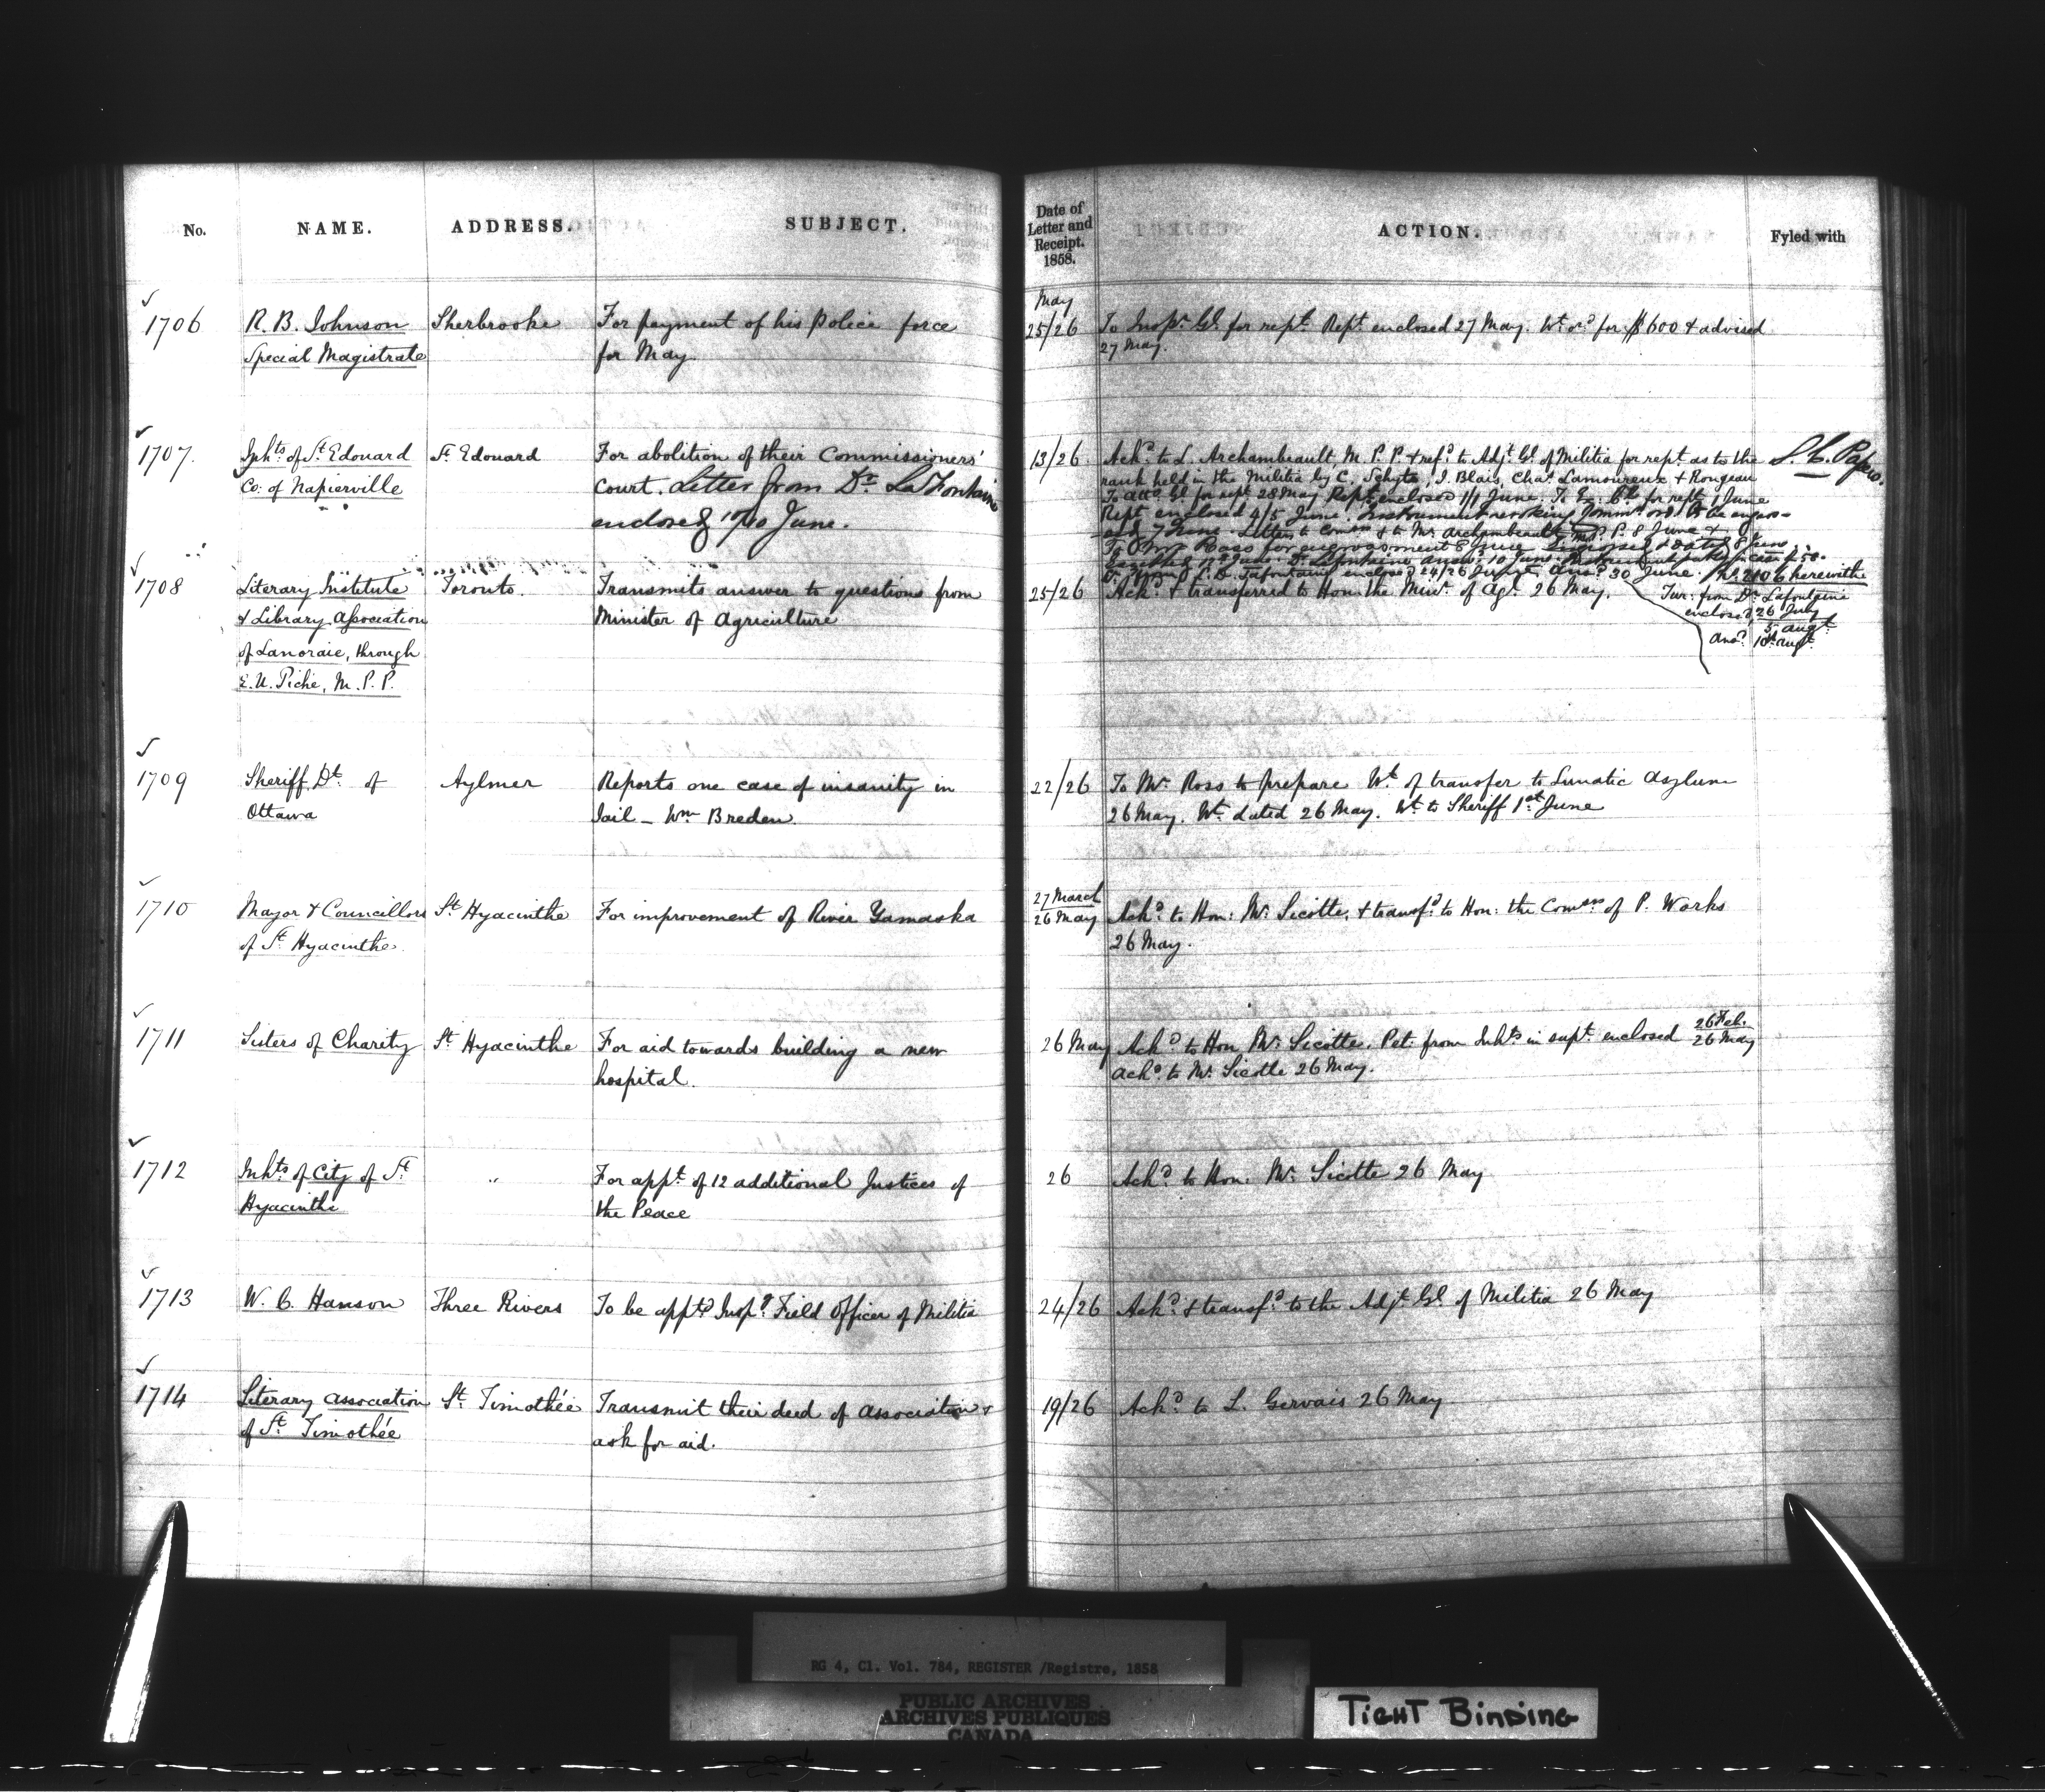 No.
NAME.
ADDRESS.
SUBJECT.
Date of
Letter and
Receipt.
1858.
ACTION.
Fyled with
May
1706
R. B. Johnson
Special Magistrate
Sherbrooke
For payment of his Police force
for May.
25/26
To Inspr. Gl. for rept. Rept. enclosed 27 May. Wt. for $600 & advised
27 May.
1707.
Inhts of St. Edouard
Co: of Napierville
St. Edouard
For abolition of their Commissioners'
Court. Letter from Dr. LaFontaine
enclosed 10/10 June.
13/26
Ackd. to L. Archambeault, M. P. P. & refd. to Adjt. Gl. of Militia for rept. as to the
rank held in the Militia by C. Schyts, J. Blais, Chas. Lamoureux & Rougeau
To Atty. Gl. for rept. 28 May Rept. enclosed 1/1 June. To Ex. Cl. for rept. 1 June
Rept. enclosed 4/5 June. Instrument revoking Commn. ord. to be engros-
7 June. Letters to & to Mr. Archambeault M.P.P. 8 June &
To Mr. Ross for engrossment 8 June
L. D. Lafontaine enclosed 24/26 Ansd. 30 June. No. 2106 herewith
S. C. Papers.
fur: from Dr. Lafontaine
enclosed 26 July
5 augt.
Ansd. 10th augt.
1708
Literary Institute
& Library Association
of Lanoraie, through
E. U. Piché, M. P. P.
Toronto.
Transmits answer to questions from
Minister of Agriculture
25/26
Ackd. & transferred to Hon. the Minr. of Agr. 26 May.
1709
Sheriff Dt. of
Ottawa
Aylmer
Reports one case of insanity in
Jail – Wm Breden.
22/26
To Mr. Ross to prepare Wt. of transfer to Lunatic Asylum
26 May. Wt. dated 26 May. Wt. to Sheriff 1st June
1710
Mayor & Councillors
of St. Hyacinthe.
St. Hyacinthe
For improvement of River Yamaska
27 March
26 May
Ackd. to Hon: Mr. Sicotte, & transfd. to Hon: the Comrs. of P. Works
26 May.
1711
Sisters of Charity
St. Hyacinthe
For aid towards building a new
hospital.
26 May
Ackd. to Hon Mr. Sicotte. Pet: from Inhts. in supt. enclosed 26 Feb.
26 May
Ackd. to Mr. Sicotte 26 May.
1712
Inhts. of City of St.
Hyacinthe
"
For appt. of 12 additional Justices of
the Peace
26
Ackd. to Hon. Mr. Sicotte 26 May
1713
W. C. Hanson
Three Rivers
To be apptd. Inspg. Field Officer of Militia
24/26
Ackd. & transfd. to the Adjt. Gl. of Militia 26 May
1714
Literary Association
of St. Timothée
St. Timothée
Transmit their deed of Association &
ask for aid.
19/26
Ackd. to L. Gervais 26 May
RG 4, Cl. Vol. 784, REGISTER /Registre, 1858
PUBLIC ARCHIVES
ARCHIVES PUBLIQUES
CANADA
TIGHT BINDING